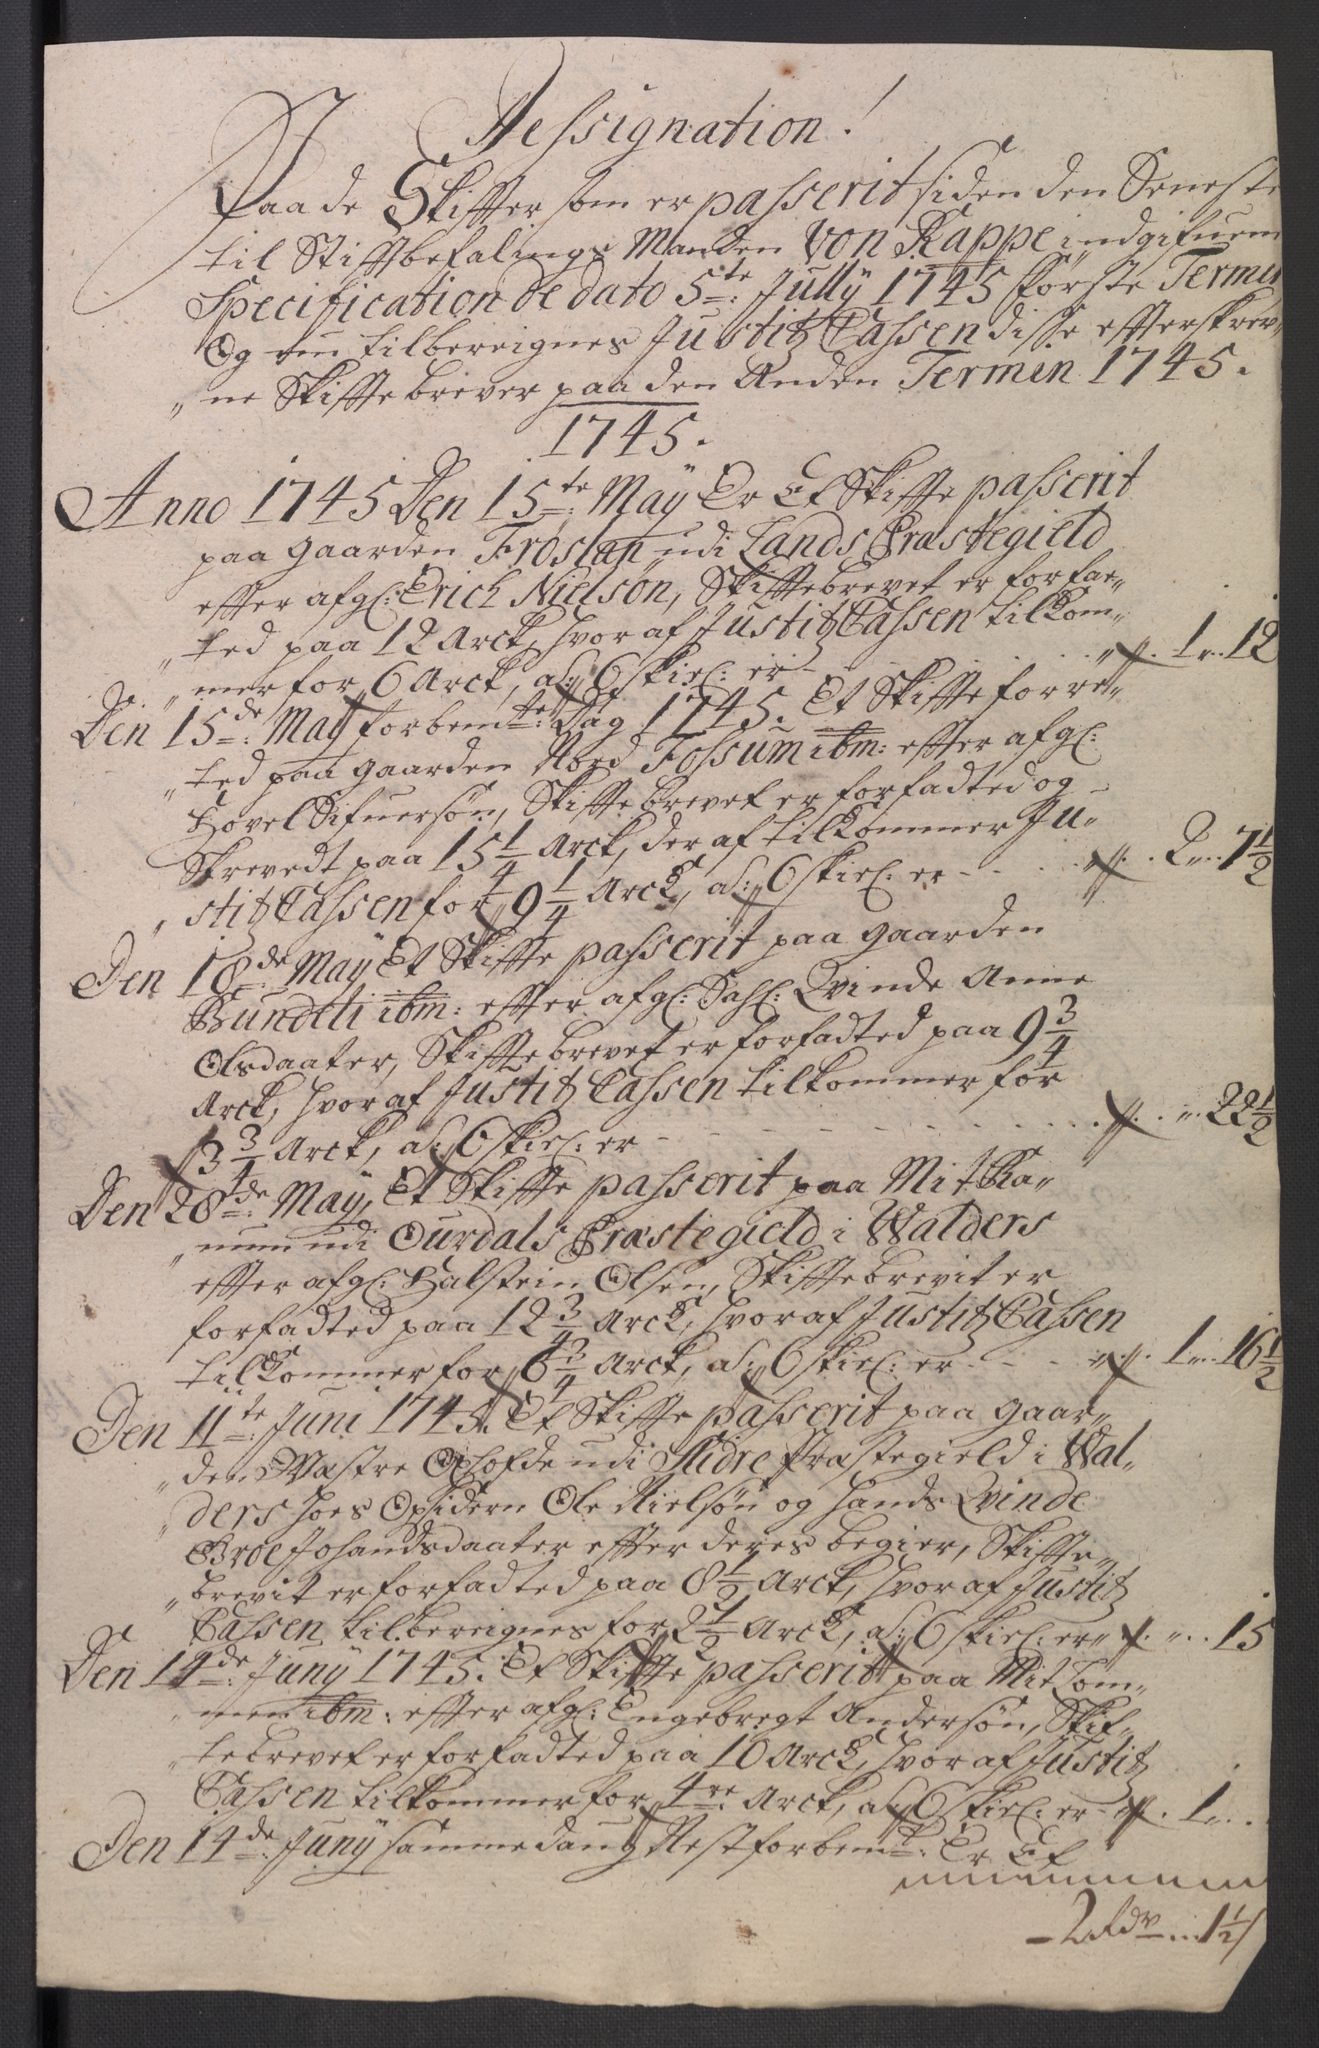 Dessignation!
Paa de Skiffter som er passerit siden den Seneste
til Stifftbefalings Manden Von Rappe indgifuene
Specification de dato 5te: Jully 1745 første Termin
Og nu tilbereignes Justitz Cassen disse effterskrev-
"ne Skifftebrever paa den Anden Termin 1745.
1745.
Anno 1745 Den 15te: May Er Et Skiffte passerit
paa gaarden Frøslan, udi Lands Præstegield
effter afg: Erich Nielsøn, Skifftebrevet er forfat-
"ted paa 12 Arck, hvoraf Justitz Cassen tilkom-
"mer for 6 Arck, a 6 skil: er - - - 1 .. 12
Den 15de: May forbemte: Dag 1745. Et Skiffte forret-
"ted paa gaarden Nord Fossum ibm: effter afg:
Hovel Sifuersøn, Skifftebrevet er forfadted og
Skrevedt paa 15 1/4 Arck, der af tilkommer Ju-
"stitz Cassen for 9 1/4 Arck, a 6 skil: er - - - 2 .. 7 1/2
Den 18de: May Et Skiffte passerit paa gaarden
Bundtli ibm: effter afg: Sal: Qvinde Anne
Olsdaater, Skifftebrevet er forfadted paa 9 3/4
Arck, hvoraf Justitz Cassen tilkommer for
3 3/4 Arck, a 6 skil: er - - - " .. 22 1/2
Den 28de: May, Et Skiffte passerit paa Mit Ra-
"num udi Ourdals Præstegield i Walders
effter afg: Halstein Olsen, Skifftebrevit er
forfadted paa 12 3/4 Arck, hvoraf Justitz Cassen
tilkommer for 6 3/4 Arck, a 6 skil: er - - - 1 .. 16 1/2
Den 11te: Juni 1745. Et Skiffte passerit paa gaar-
"den Wæstre udi Slidre Præstegield i Wal-
"ders hoes Opsidern Ole Nielsøn og hands Qvinde
Broe Johandsdaater effter deres begier, Skiffte-
"brevit er forfadted paa 8 1/2 Arck, hvoraf Justitz
Cassen tilbereignes for 2 1/2 Arck, a 6 skil: er " .. 15
Den 14de: Juny 1745. Et Skiffte passerit paa Mit Lom-
"men ibm: effter afg: Engebregt Andersøn, Skif-
"tebrevet er forfadted paa 10 Arck, hvoraf Justitz
Cassen tilkommer for 4re: Arck, a 6 skil: er - 1 ..
Den 14de: Juny samme dau Nest forbemt: Er Et